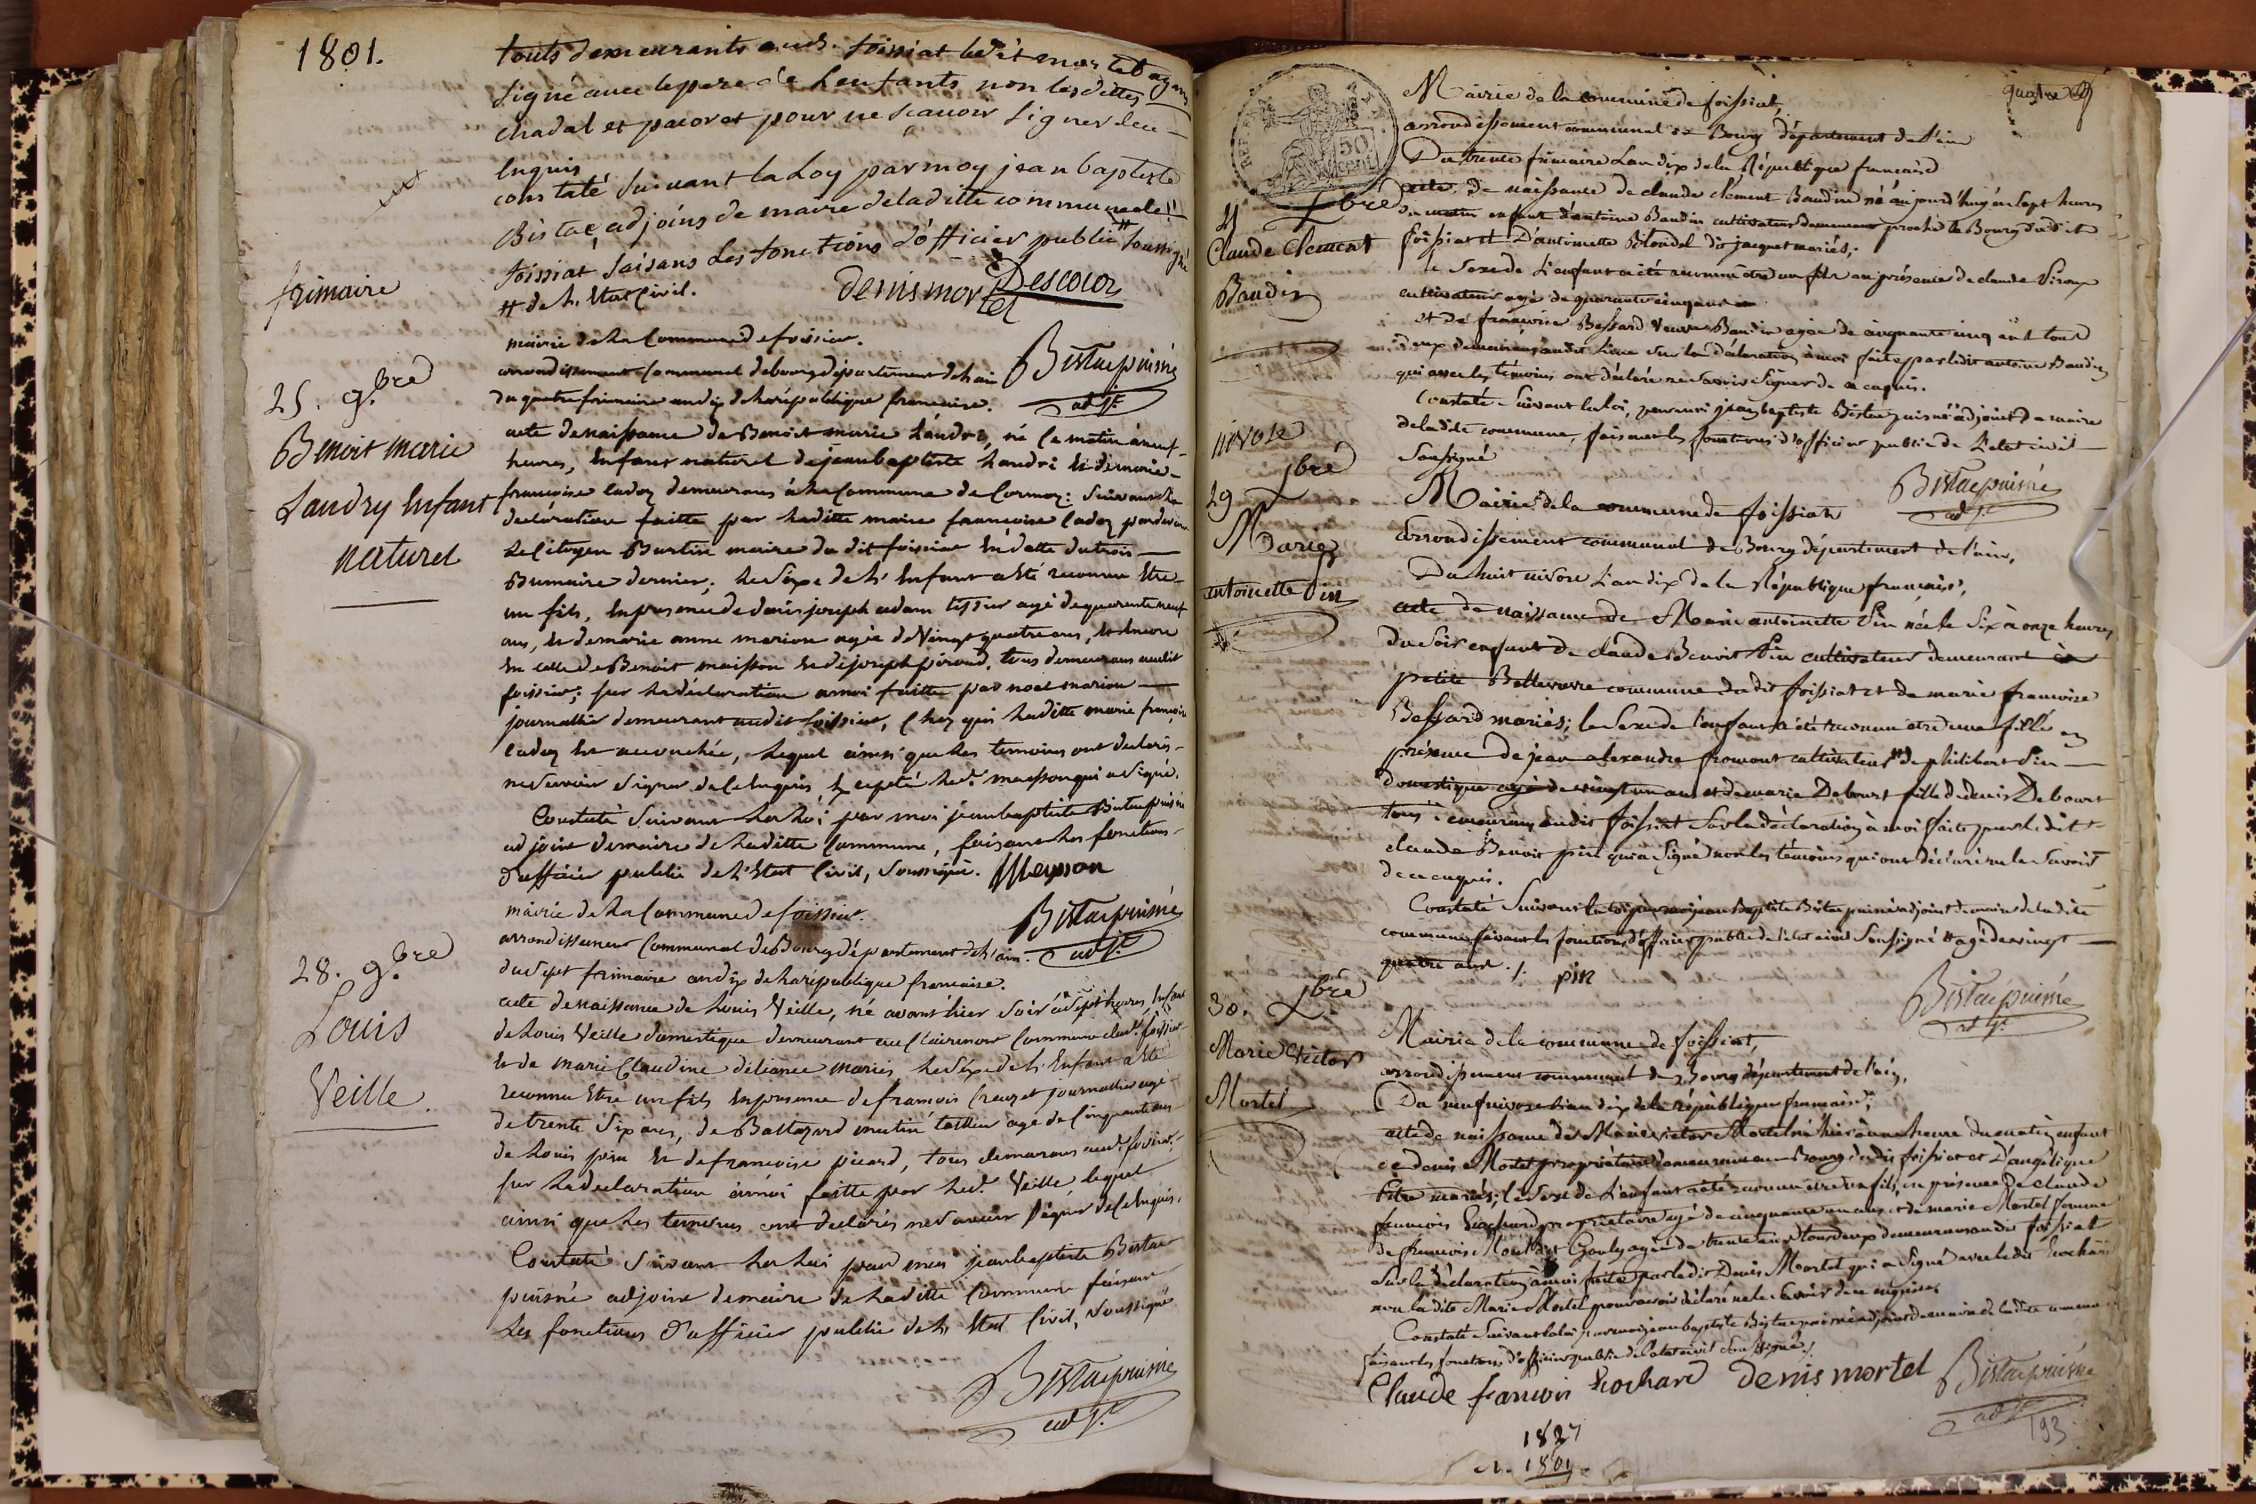 1801.
touts demeurants aud. foissiat ledit mortel ayans
signé avec le pere de l'enfants non lesdittes
chadal et pacoret pour ne scavoir signer de ce
enquis
constaté suivant la Loy par moy jean baptiste
Bistac adjoins de maire de laditte commune de
foissiat faisans les fonctions d'officier public # soussigné
# de l'Etat Civil.
denis mortel
Descour
frimaire
mairie de la Commune de foissiat.
arrondissement Communal de bourg département de l'ain
Bistac puisné
adjt
25. 9.bre
Benoit marie
Landry Enfant
naturel
du quatre frimaire an dix de la république francaise.
acte de naissance de Benoit marie Landri, né ce matin à neuf
heures, Enfant naturel de jean baptiste Landri et de marie
francoise cadoz demeurans à la Commune de Cormoz: suivant la
declaration faitte par laditte marie francoise cadoz pardevant
le Citoyen Burtin maire du dit foissiat en datte du trois
Brumaire dernier; le sexe de l'Enfant a été reconnu Etre
un fils, en presence de denis joseph adam tissier agé de quarente neuf
ans, et de marie anne marion agée de Vingt quatre ans, et encore
en celle de Benoit maisson et de joseph piroud, tous demeurans audit
foissiat; sur la déclaration a moi faitte par noel marion
journallier demeurant audit foissiat, Chez qui laditte marie françoise
cadoz est accouchée, lequel ainsi que les temoins ont declarés
ne savoir signer de Ce Enquis, Excepté led. maisson qui a signé.
Constaté suivant la Loi par moi jean baptiste Bistac puisné
adjoint de maire de laditte Commune, faisant les fonctions
d'officier public de l'Etat Civil, soussigné. Meysson
Bistac puisné
adjt
28. 9.bre
Louis
Veille.
mairie de la Commune de foissiat.
arrondissement Communal de Bourg département de l'ain.
du sept frimaire an dix de la république francaise.
acte de naissance de Louis Veille, né avant hier soir à sept heures, Enfant
de Louis Veille domestique demeurant au Clairmont Commune dud. foissiat
et de marie Claudine déliance mariés, le sexe de l'Enfant a été
reconnu Etre un fils en presence de francois Creuzet journallier agé
de trente six ans, de Baltazard mutin tailleur agé de Cinquante ans
de Louis pin et de francoise picard, tous demeurans aud. foissiat,
sur la declaration à moi faitte par led. Veille lequel
ainsi que les temoins ont declarés ne savoir signer de Ce Enquis.
Constaté suivant la Loi par moi jean baptiste Bistac
puisné adjoint de maire de laditte Commune faisant
les fonctions d'officier public de l'Etat Civil, soussigné
Bistac puisné
adjt
quatre
50
cent
Mairie de la commune de foissiat
arrondissement communal de Bourg département de l'ain
Du trente frimaire L'an dix de la République française
Xbre
Claude Clement
Baudin
acte de naissance de claude clément Baudin né aujourd'huy à sept heures
du matin enfant d'antoine Baudin cultivateur demeurant proche le Bourg dudit
foissiat et D'antoinette Blondel dit jacquet mariés;
le sexe de L'enfant a été reconnu etre un fils en présence de claude Piroux
cultivateur agé de quarante cinq ans
et de francoise Bessard veuve Baudin agée de cinquante cinq ans tous
deux demeurans audit Lieu sur la déclaration à moi faite par ledit antoine Baudin
qui avec les témoins ont déclaré ne savoir signer de ce enquis.
Constaté suivant la loi, par moi jean baptiste Bistac puisné adjoint de maire
de ladite commune, faisant les fonctions d'officier public de L'etat civil
soussigné
Bistac puisné
adjt
nivose
Xbre
29
Marie
antoinette Pin
Mairie de la commune de foissiat
arrondissement communal de Bourg département de l'ain,
Du huit nivose L'an dix de la République française,
acte de naissance de Marie antoinette Pin née le six à onze heures
du soir enfant de claude Benoit Pin cultivateur demeurant à
petite Bellevavre commune dudit foissiat et de marie francoise
Bessard mariés; le sexe de l'enfant a été reconnu etre d'une fille en
présence de jean alexandre fromont cultivateur # de philibert Pin
domestique agé de vingt un ans et de marie Debourt fille de denis Debourt
tous demeurans audit foissiat sur la déclaration à moi faite par ledit
claude Benoit pin qui a signé non les témoins qui ont déclaré ne le savoir
de ce enquis.
Constaté suivant la loi par moi jean Baptiste Bistac puisné adjoint de maire de ladite
commune faisant les fonctions d'officier public de l'etat civil soussigné # agé de vingt
quatre ans ./. pin
Bistac puisné
adjt
30. Xbre
Marie Victor
Mortel
Mairie de la commune de foissiat,
arrondissement communal de Bourg département de l'ain,
Du neuf nivose L'an dix de la république française,
acte de naissance de Marie victor Mortel né hier à une heure du matin enfant
de denis Mortel propriétaire demeurant au Bourg dudit foissiat et D'angélique
Pitre mariés; le sexe de L'enfant a été reconnu etre un fils, en présence de claude
francois Guichard propriétaire agé de cinquante un ans et de marie Mortel femme
de francois Gouly agée de trente ans tous deux demeurans audit foissiat
sur la déclaration à moi faite par ledit Denis Mortel qui a signé avec ledit
non ladite Marie Mortel pour avoir déclaré ne le savoir de ce enquise
Constaté suivant la loi par moi jean baptiste Bistac puisné adjoint de maire de ladite commune
faisant les fonctions d'officier public de l'etat civil soussigné ./.
Claude francois denis mortel Bistac puisné
adjt
193
1827
1801